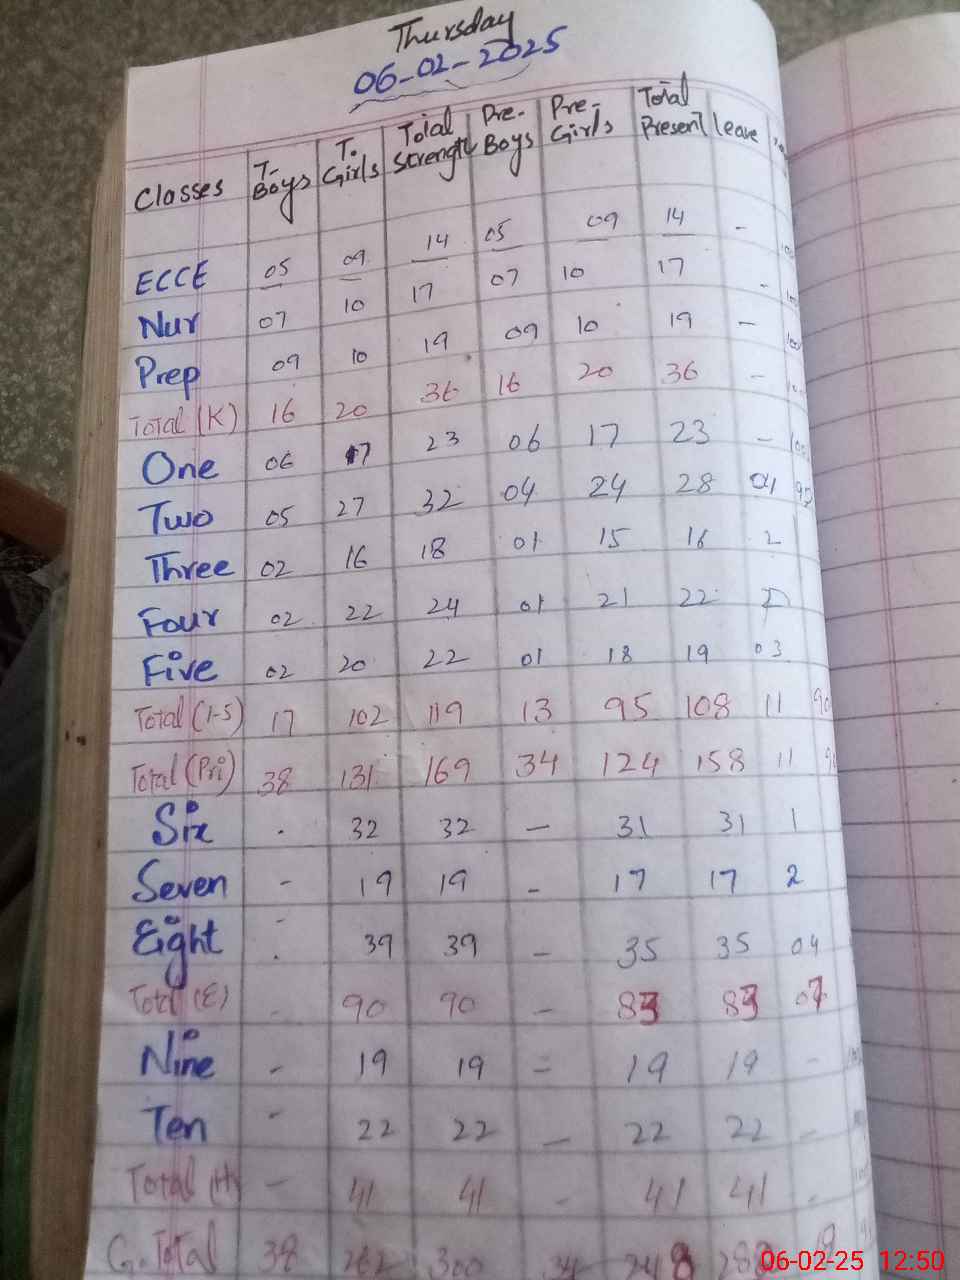 Thursday
06-02-2025
Classes T. Boys T. Girls Total Strength Pre- Boys Pre- Girls Total Present leave
ECCE 05 09 14 05 09 14 -
Nur 07 10 17 07 10 17 -
Prep 09 10 19 09 10 19 -
Total (K) 16 20 36 16 20 36 -
One 06 17 23 06 17 23 -
Two 05 27 32 04 24 28 04
Three 02 16 18 01 15 16 2
Four 02 22 24 01 21 22
Five 02 20 22 01 18 19 03
Total (1-5) 17 102 119 13 95 108 11
Total (Pri) 38 131 169 34 124 158 11
Six . 32 32 - 31 31 1
Seven - 19 19 - 17 17 2
Eight - 39 39 - 35 35 04
Total (E) - 90 90 - 83 83 07
Nine - 19 19 = 19 19 -
Ten - 22 22 - 22 22 -
Total (H) - 41 41 - 41 41 -
G.Total 38 262 300 34 248
06-02-25 12:50